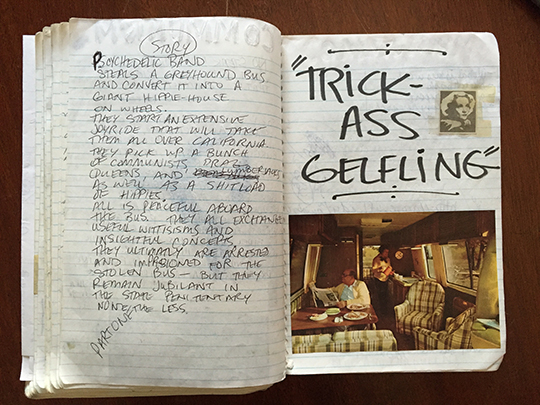 STORY
PSYCHEDELIC BAND
STEALS A GREYHOUND BUS,
AND CONVERT IT INTO A
GIANT HIPPIE-HOUSE
ON WHEELS.
THEY START AN EXTENSIVE
JOYRIDE THAT WILL TAKE
THEM ALL OVER CALIFORNIA.
THEY PICK UP A BUNCH
OF COMMUNISTS, DRAG
QUEENS, AND
AS WELL AS A SHITLOAD
OF HIPPIES.
ALL IS PEACEFUL ABOARD
THE BUS. THEY ALL EXCHANGE
USEFUL WITTISISMS AND
INSIGHTFUL CONCEPTS.
THEY ULTIMATLY ARE ARRESTED
AND IMPRISONED FOR THE
STOLEN BUS — BUT THEY
REMAIN JUBILANT IN
THE STATE PENITENTARY
NONE THE LESS.
PART ONE
"TRICK-
ASS
GELFLING"